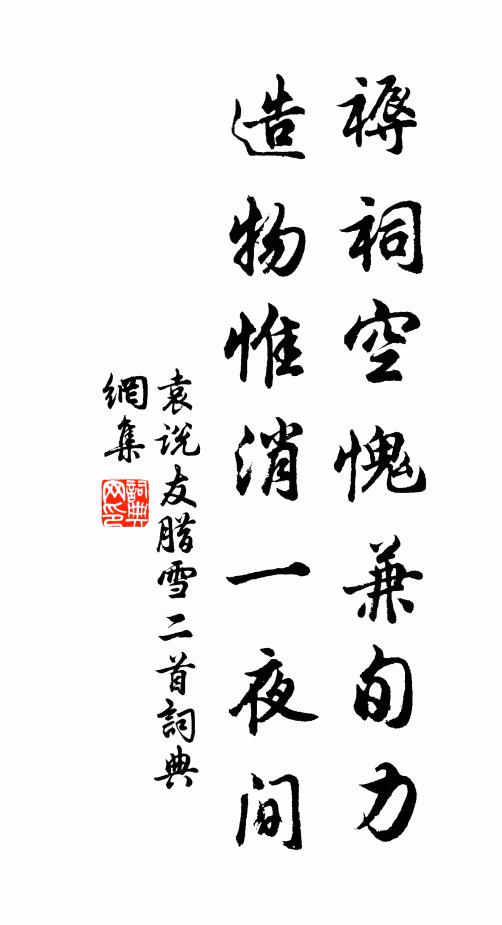 祷祠空愧兼旬力
造物惟消一夜間
袁说友腊雪二首詞典
網集
詞典
网印